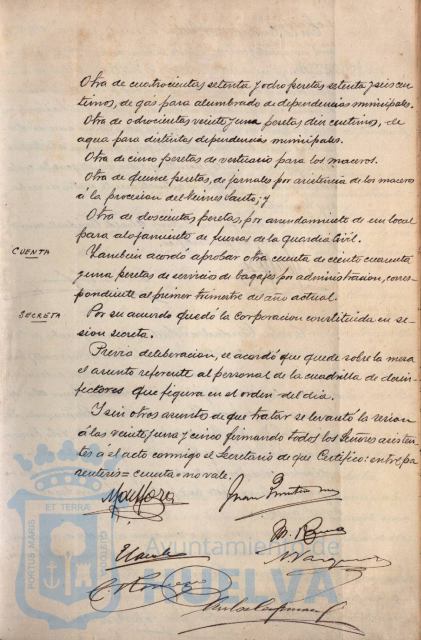 Otra de cuatrocientas setenta y ocho pesetas setenta y seis cen
timos, de gas para alumbrado de dependencias municipales.
Otra de ochocientas veinte y una pesetas diez centimos, de
agua para distintas dependencias municipales.
Otra de cinco pesetas de vestuario para los maceros.
Otra de quince pesetas, de jornales por asistencia de los maceros
á la procesion del Viernes Santo; y
Otra de doscientas pesetas, por arrendamiento de un local
para alojamiento de fuerzas de la guardia Civil.
CUENTA
Tambien acordó aprobar otra cuenta de ciento cuarenta
y una pesetas de servicio de bagajes por administracion, corres-
pondiente al primer trimestre del año actual.
SECRETA
Por su acuerdo quedó la Corporacion constituida en se-
sion secreta.
Previa deliberacion, se acordó que quede sobre la mesa
el asunto referente al personal de la cuadrilla de desin-
fectores que figura en el orden del dia.
Y sin otros asuntos de que tratar se levantó la sesion
á las veinte y una y cinco firmando todos los Señores asisten
tes á el acto conmigo el Secretario de que Certifico: entre pa
rentesis = cuenta = no vale.
PORTUS MARIS
ET TERRÆ
CUSTODIA
Ayuntamiento de
HUELVA